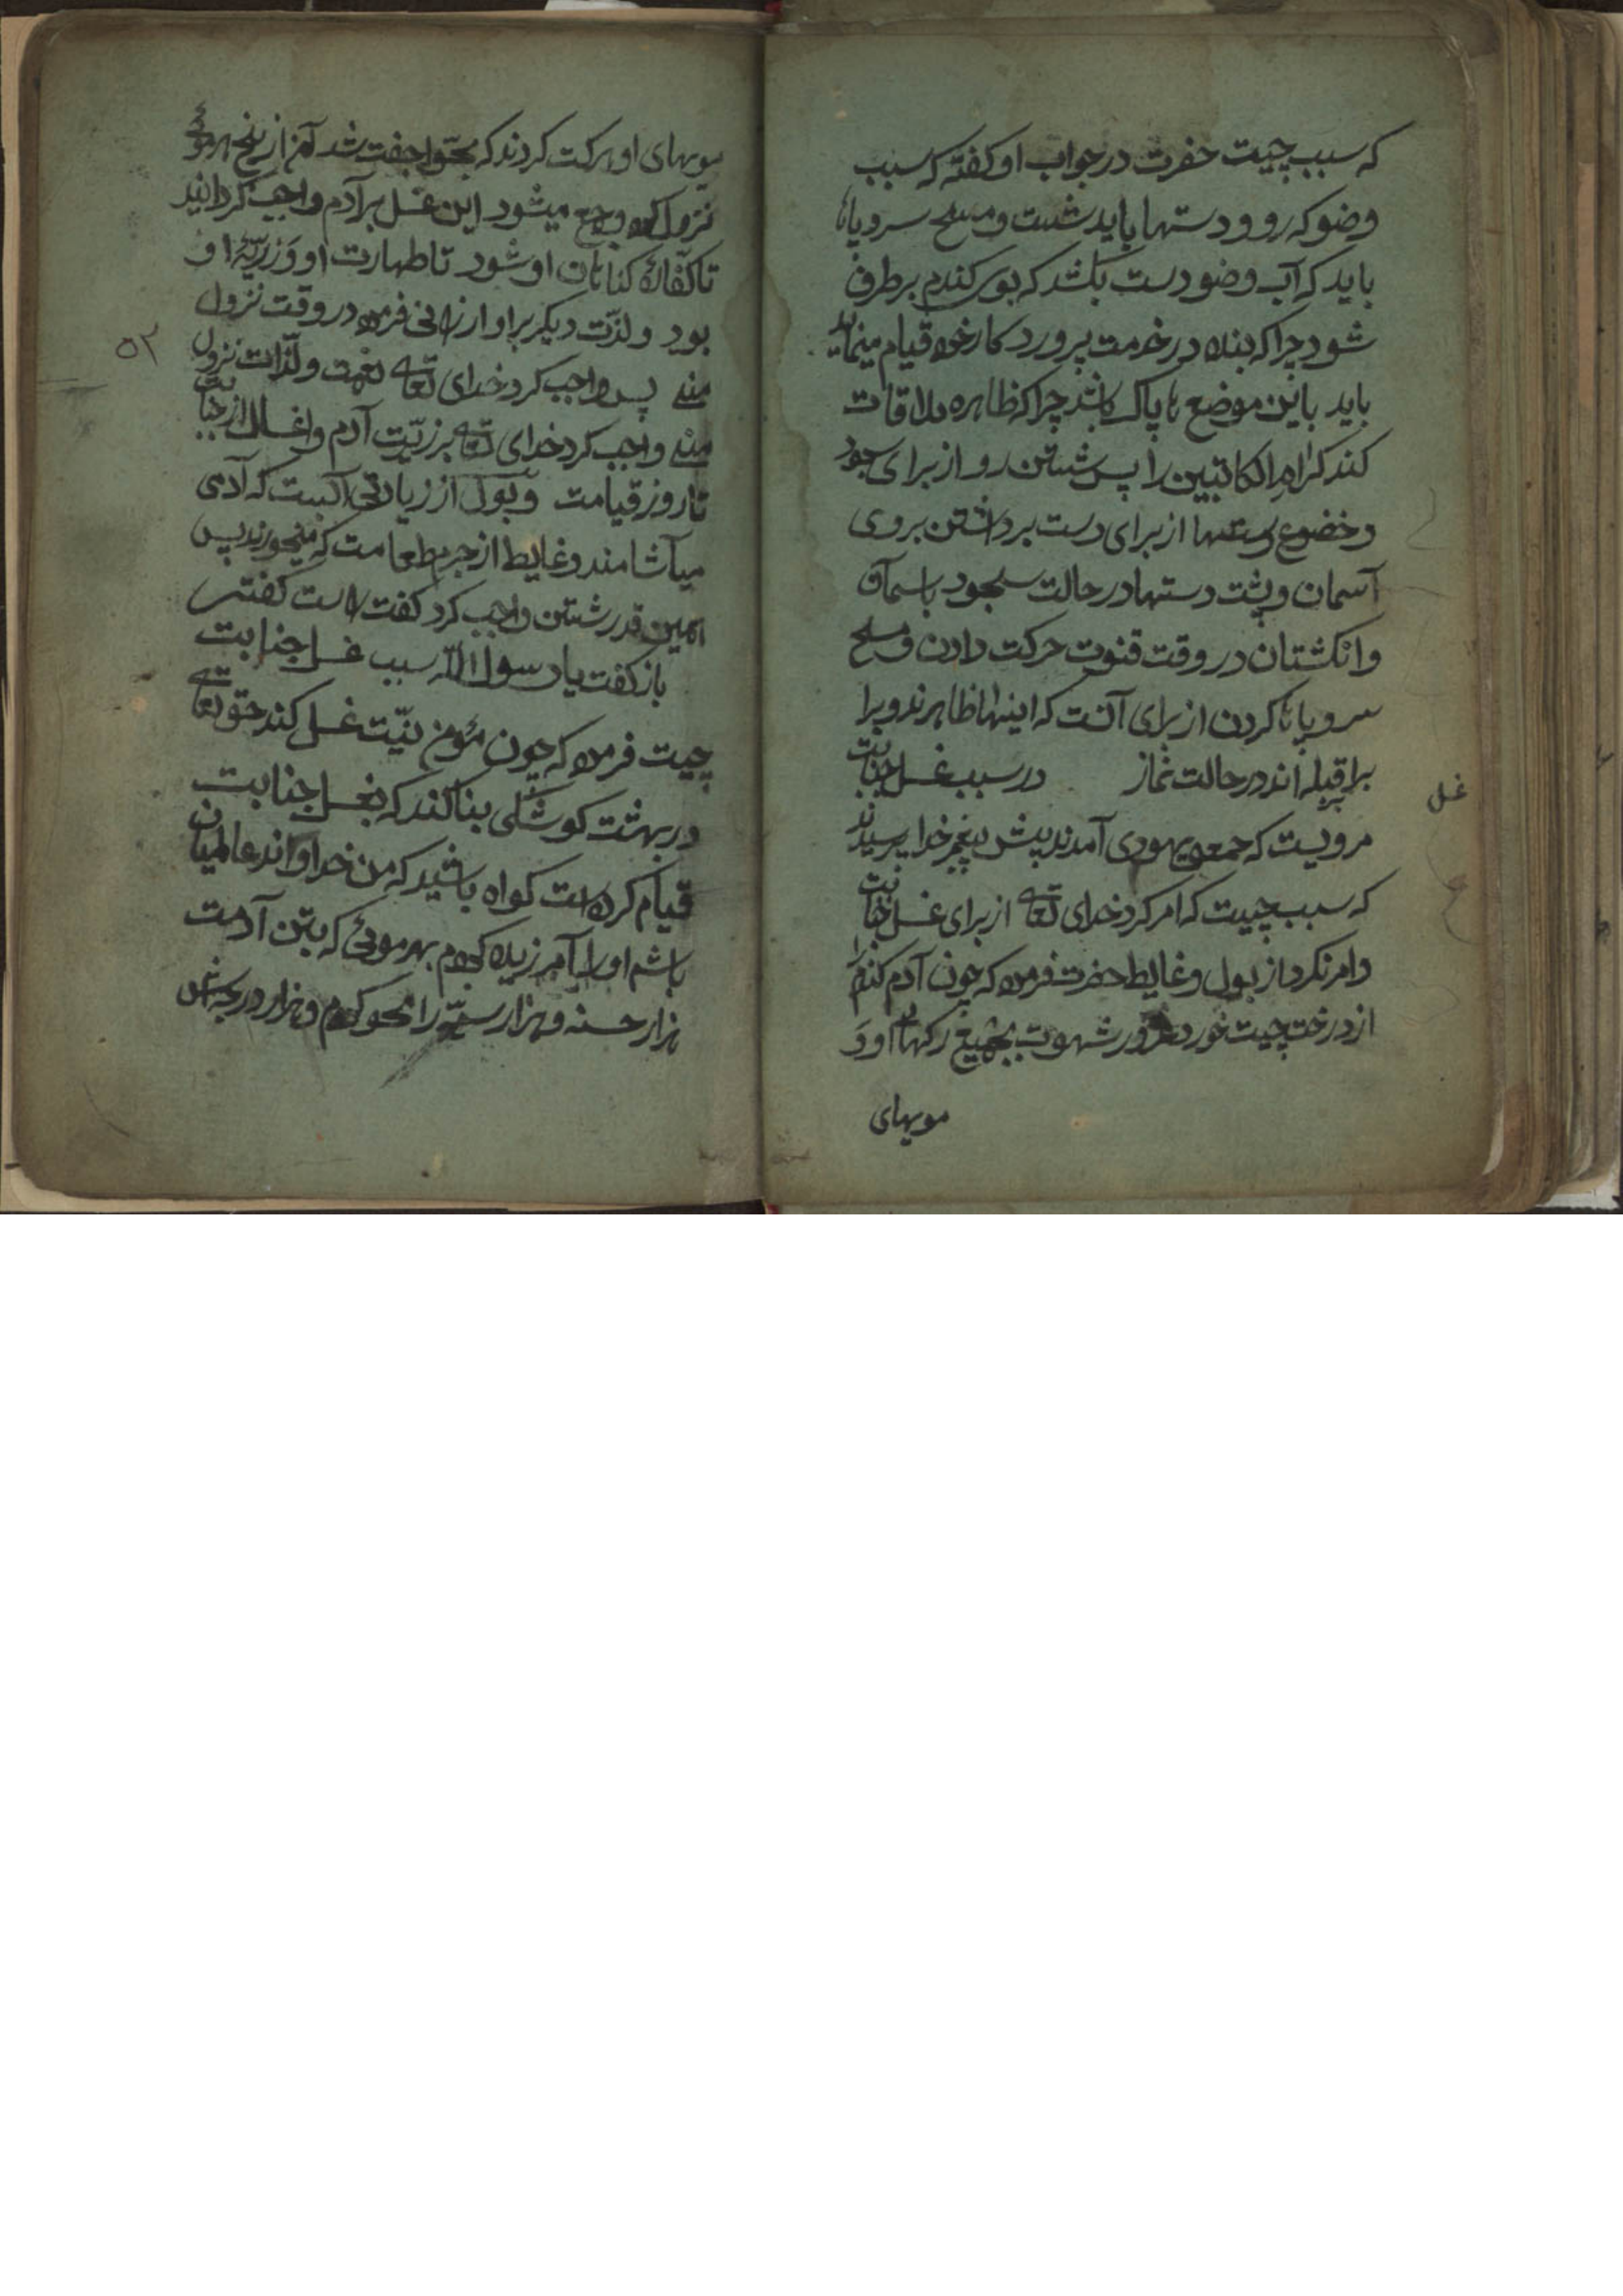 که سبب چیست حضرت در جواب او کفته که سبب
وضو که رو و دستها باید شست و مسح سر و پاها
باید که آب وضو دست بکشد که بوی کندم بر طرف
شود چرا که بنده در خدمت پروردکار خود قیام مینماید
باید باین موضع پاک باشد چرا که ظاهره ملاقات
کند کرام الکاتبین را پس شستن رو از برای سجود
و خضوع دستها از برای دست برداشتن بروی
آسمان و پشت دستها در حالت سجود باسمان
و انکشتان در وقت قنوت حرکت دادن و مسح
سر و پاها کردن از برای آنست که اینها ظاهرند و برا
برا قبله اند در حالت نماز در سبب غسل جنابت
غسل
مرویست که جمعی یهودی آمدند پیش پیغمبر خدا پرسیدند
که سبب چیست که امر کرد خدای تعالی از برای غسل جنابت
و امر نکرد از بول و غایط حضرت فرمود که چون آدم کندم را
از درخت چیت خورد در شهوت بجمیع رکهای او و
مویهای
مویهای او حرکت کردند که بحوا جفت شد از بیخ هر موئی
نزول میشود این غسل بر آدم واجب کردانید
تا کفاره کناهان او شود تا طهارت او و زریّه او
بود و لذّت دیکر براو ارزانی فرمود در وقت نزول
۵۲
منی پس واجب کرد خدای تعالی نعمت و لذّات نزول
منی واجب کرد خدای تعالی بر زریّت آدم و اغسال از جنابت
تا روز قیامت و بول از زیادتی آبست که آدمی
میآشامند و غایط از جرم طعامست که میخورند پس
همین قدر شستن واجب کرد کفت راست کفتی
باز کفت یا رسول الله سبب غسل جنابت
چیست فرمود که چون مؤمن نیّت غسل کند حق تعالی
در بهشت کوشکی بنا کند که بغسل جنابت
قیام کرده است کواه باشید که من خداوند عالمیان
باشم او را آمرزیده کردم بهر موئی که بتن آدمست
هزار حسنه و هزار سیّه را محو کردم و هزار درجه